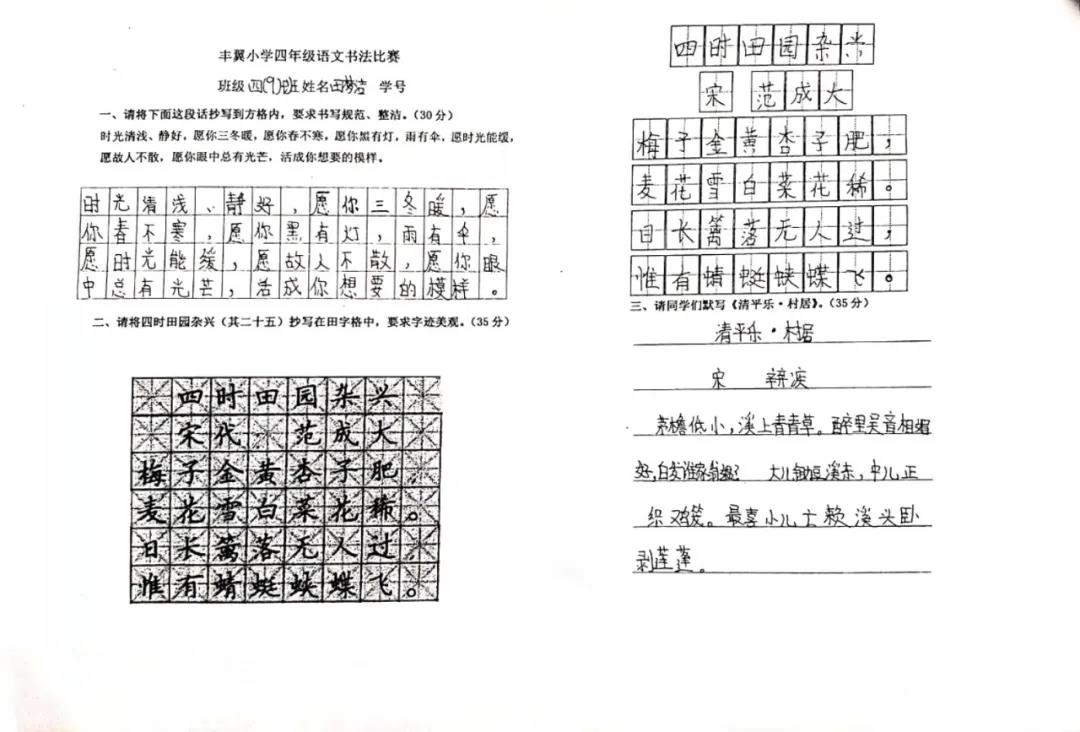 丰翼小学四年级语文书法比赛
班级四(9)班 姓名 学号
一、请将下面这段话抄写到方格内，要求书写规范、整洁。(30分)
时光清浅、静好，愿你三冬暖，愿你春不寒，愿你黑有灯，雨有伞，愿时光能缓，
愿故人不散，愿你眼中总有光芒，活成你想要的模样。
时光清浅、静好，愿你三冬暖，愿
你春不寒，愿你黑有灯，雨有伞，
愿时光能缓，愿故人不散，愿你眼
中总有光芒，活成你想要的模样。
二、请将四时田园杂兴（其二十五）抄写在田字格中，要求字迹美观。(35分)
四时田园杂兴
宋代 范成大
梅子金黄杏子肥，
麦花雪白菜花稀。
日长篱落无人过，
惟有蜻蜓蛱蝶飞。
四时田园杂兴
宋 范成大
梅子金黄杏子肥，
麦花雪白菜花稀。
日长篱落无人过，
惟有蜻蜓蛱蝶飞。
三、请同学们默写《清平乐·村居》。(35分)
清平乐·村居
宋 辛弃疾
茅檐低小，溪上青青草。醉里吴音相媚
好，白发谁家翁媪？ 大儿锄豆溪东，中儿正
织鸡笼。最喜小儿亡赖，溪头卧
剥莲蓬。